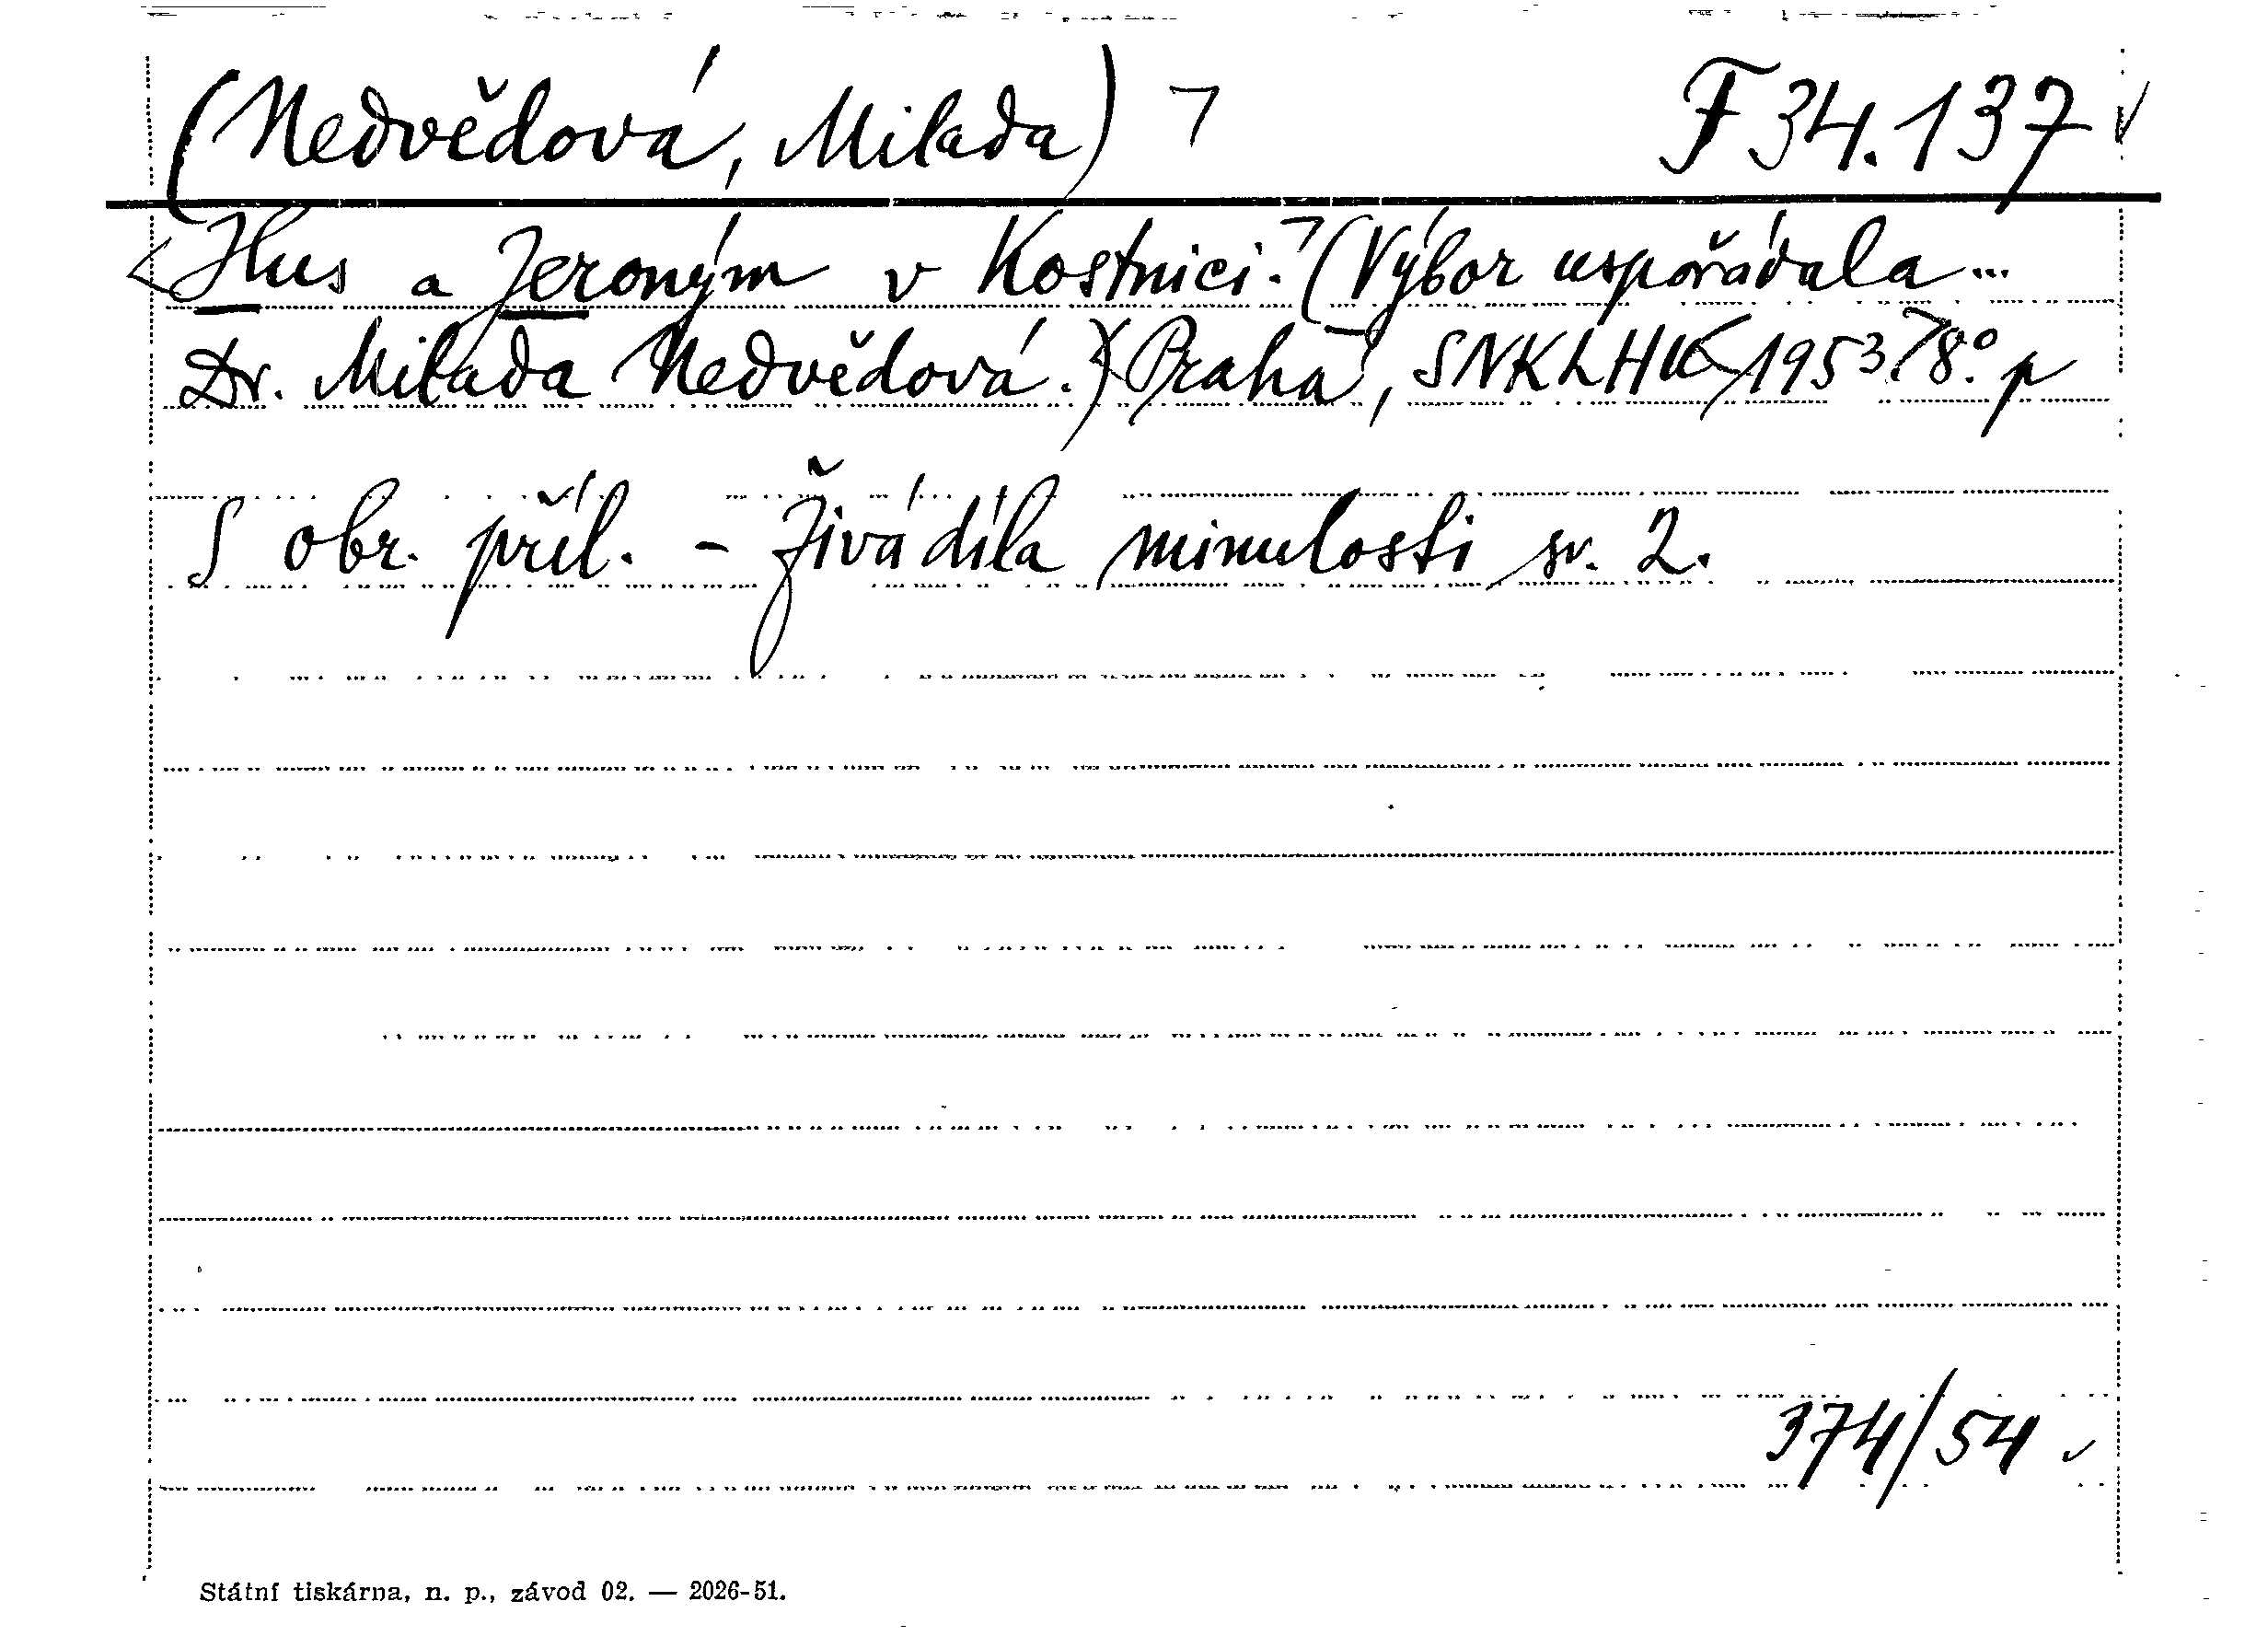 (Nedvědová, Milada) ¬ F 34.137 ✓
<Hus a Jeroným v Kostnici.¬ (Výbor uspořádala...
Dr. Milada Nedvědová.) Praha, SNKLHU 1953. 8°. p
S obr. příl. - Živá díla minulosti sv. 2.
374/54 ✓
Státní tiskárna, n. p., závod 02. — 2026-51.